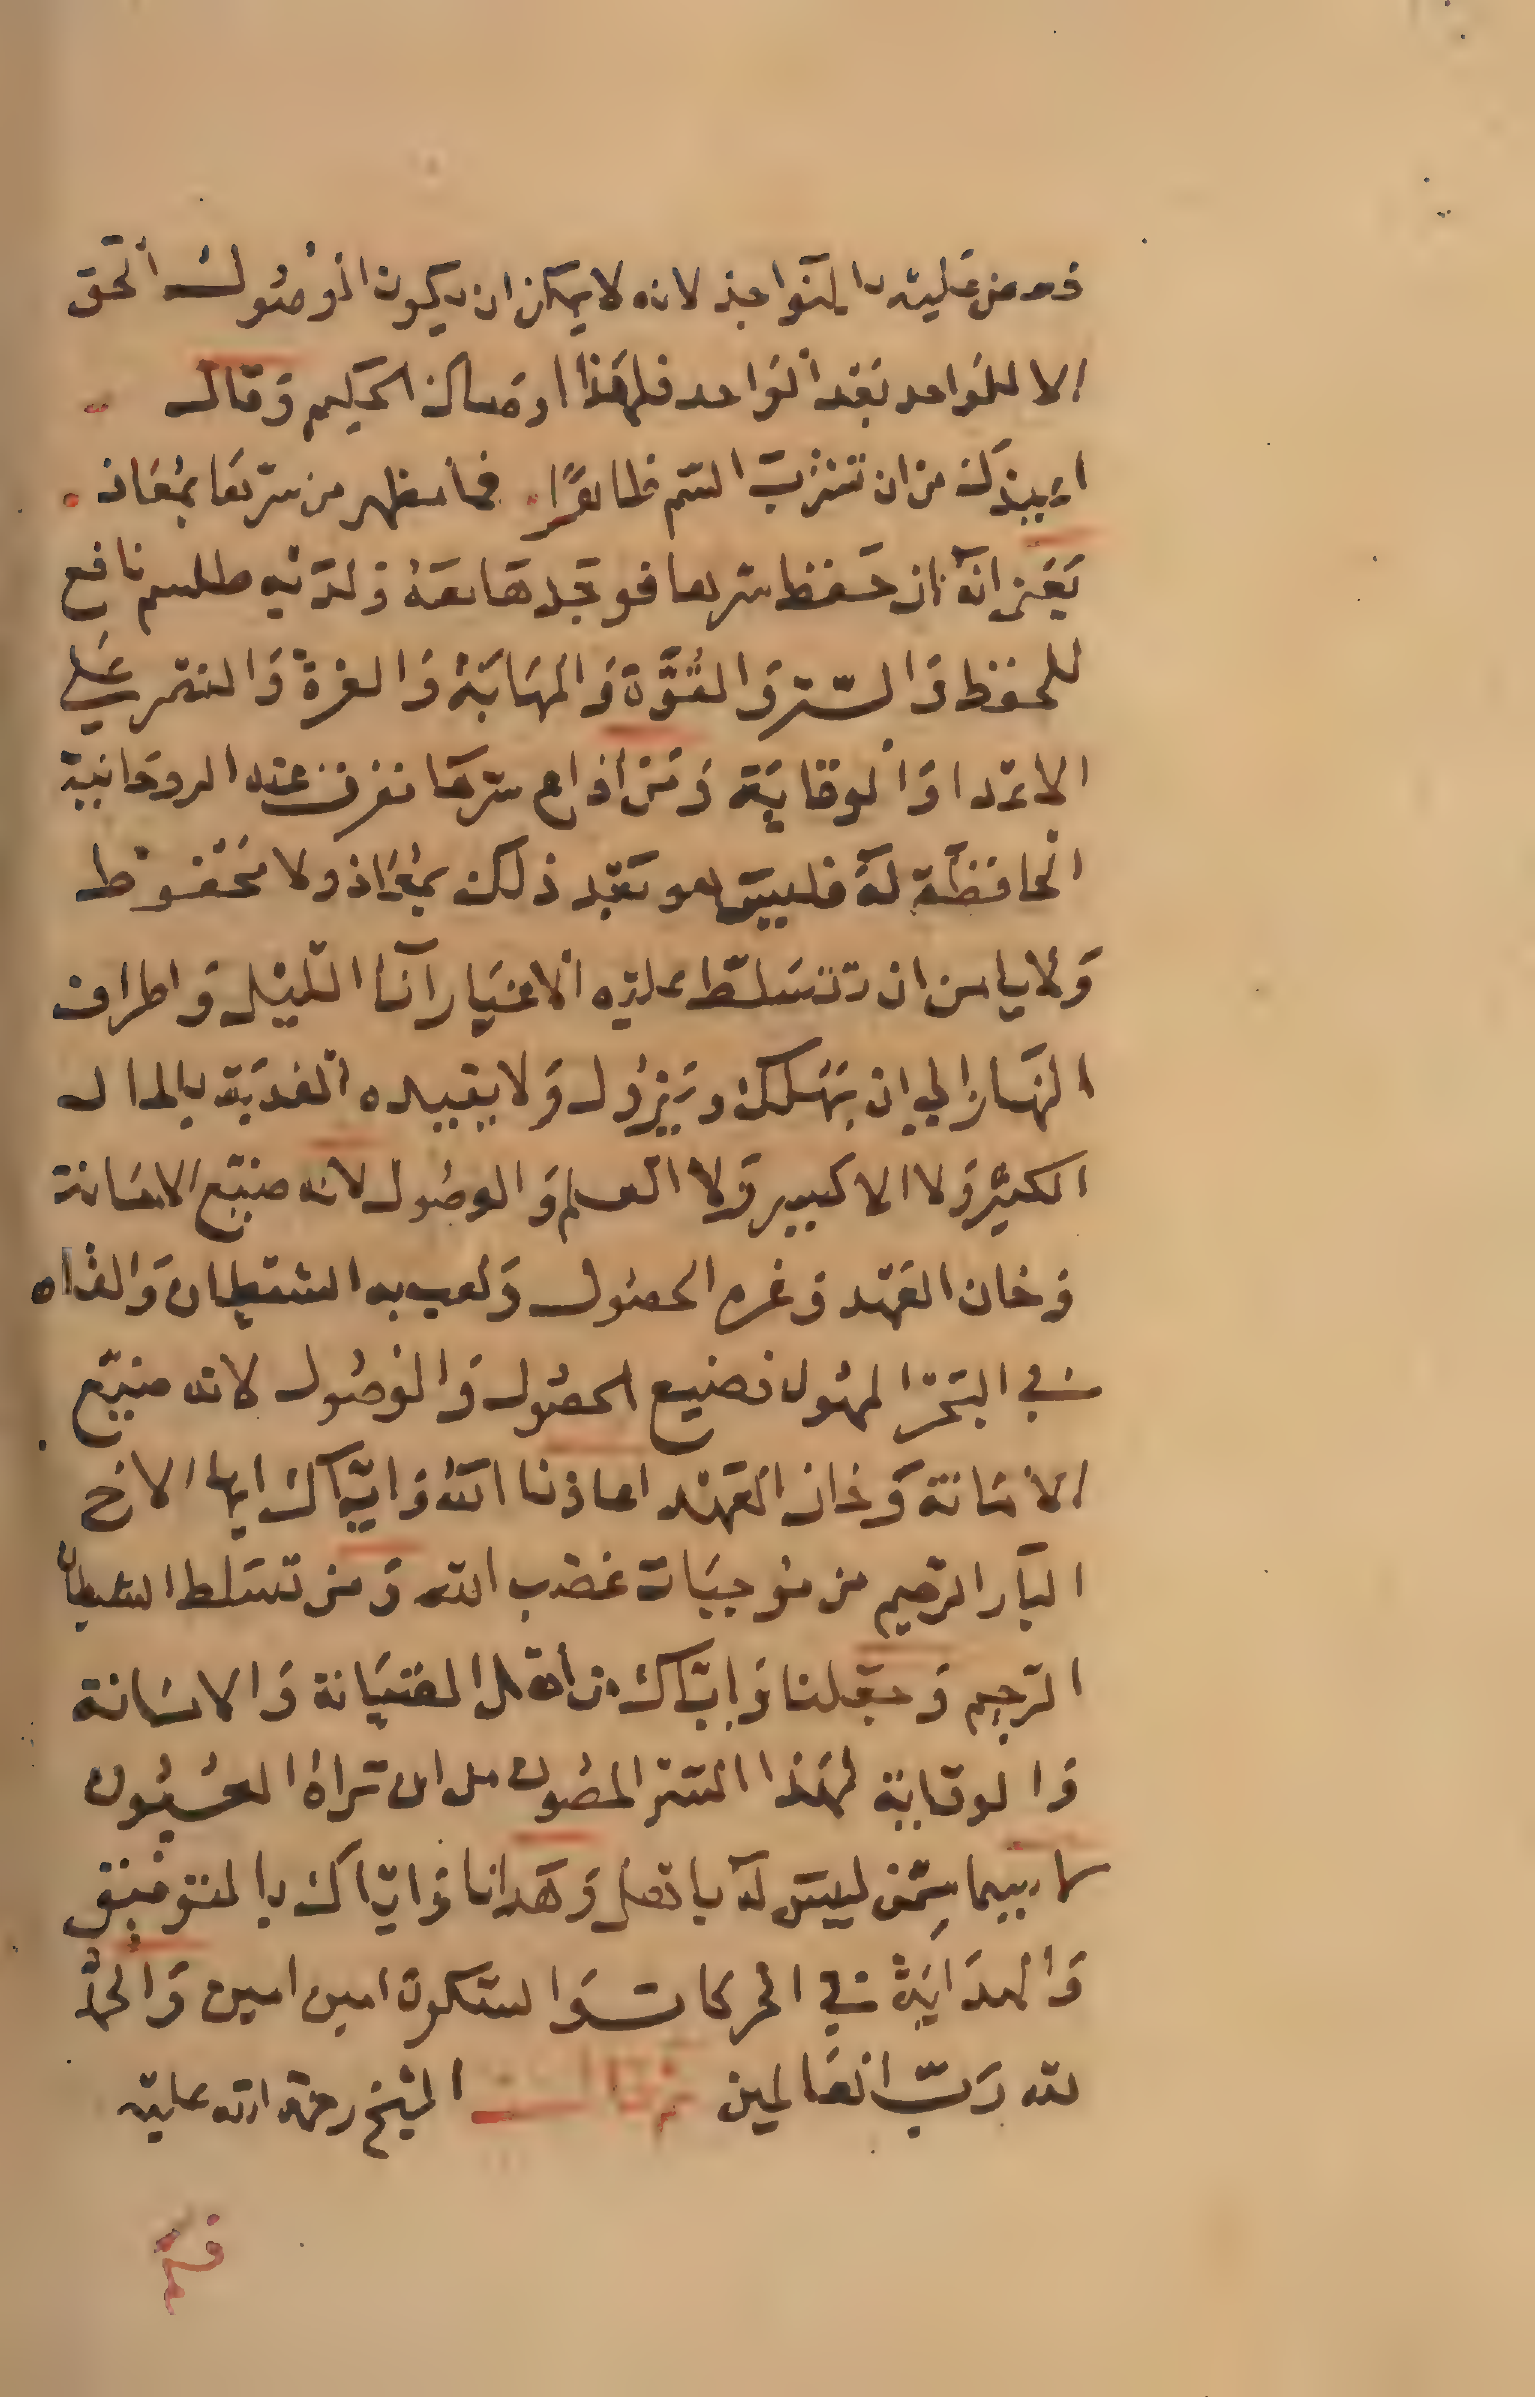 عليه بالنواجذ لانه لا يمكن ان يكون الوُصُول الحَق
الا للوَاحد بَعْد الوَاحد فلهَذا اوصَاك الحكيم وَقال
اعيذك من ان تشرَبَ السّم ظاهرًا . فما مظهر من سرّهَا بمُعَاذ .
يَعْني انّه ان حَفظ سرّهَا فوَجَدهَا مَعَهُ وَلدَيْه طلسم نافع
للحفظ وَالسّتر وَالقُوَّة وَالمهَابَة وَالعزة وَالنصر عَلي
الاعْدا وَالوقايَة وَمَنْ اذاع سرّهَا نفرت عنه الروحَانية
الحافظَة لهُ فليسَ هو بَعْد ذلك بمُعَاذ ولا مَحْفوظ
وَلا يامن ان تتسَلّط عليْه الاغيَار آنا اللّيْل وَاطراف
النهَار الي ان يَهْلك وَيَزوُل وَلا يفيده الفديَة بالمال
الكثير وَلا الاكسير وَلا العلم وَالوصُول لانه ضيّع الامَانة
وَخان العَهْد وَغره الحصُول وَلعب به الشيطان وَالقاه
في البَحْر المهُول فضيع الحصُول وَالوُصُول لانه ضيّع
الامَانة وَخان العَهْد اعاذنا اللهُ وَايّاك ايها الاخ
البَار الرّحيم من مُوجبَات غضب الله وَمن تسَلط الشيطان
الرّجيم وَجَعلنا وَايّاك من اهْل الصّيَانة وَالامَانة
وَالوقاية لهَذا السّر المصُون من ان ترَاهُ العُيُون
لا سيما ممّن ليسَ لهُ باهل وَهَدانا وَايّاك بالتوفيق
وَالهدَايَة في الحركات وَالسّكون امين امين وَالحمدُ
لله رَبّ العَالمين الشيخ رحمة الله عليه